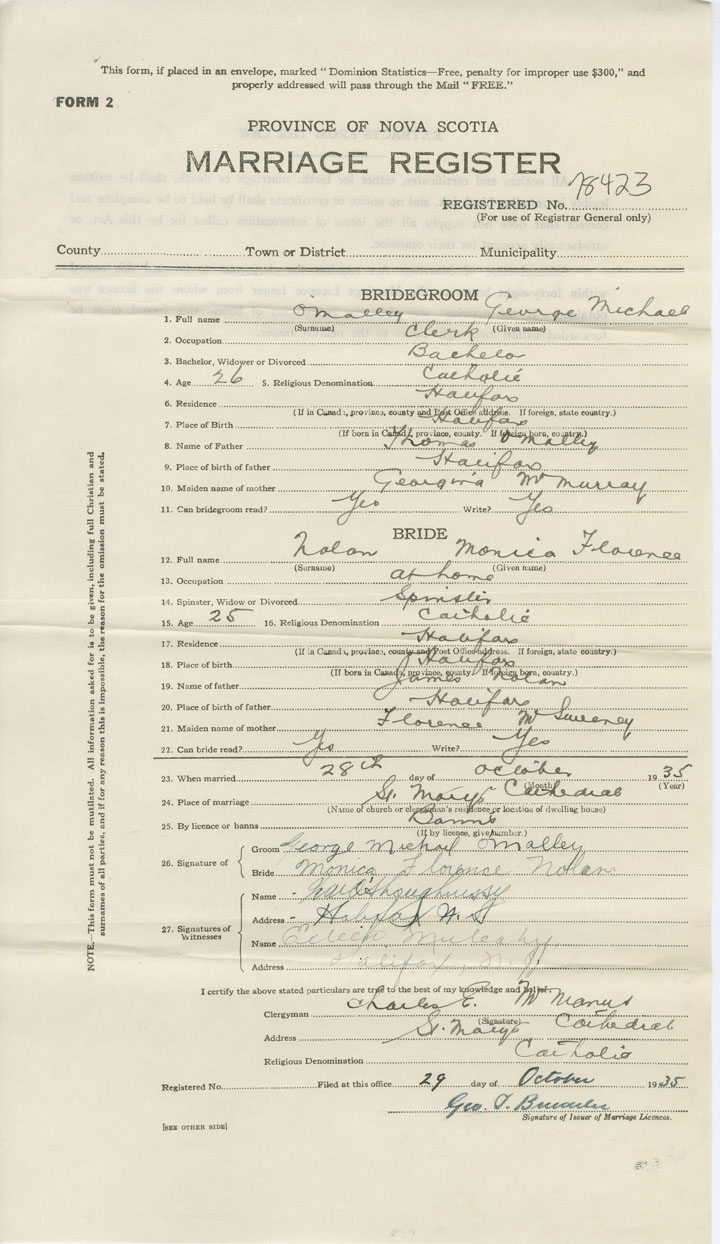 This form, if placed in an envelope, marked "Dominion Statistics—Free, penalty for improper use $300," and
properly addressed will pass through the Mail "FREE."
FORM 2
PROVINCE OF NOVA SCOTIA
MARRIAGE REGISTER
REGISTERED No. 78423
(For use of Registrar General only)
County Town or District Municipality
BRIDEGROOM
1. Full name O'Malley George Michael
(Surname) (Given name)
2. Occupation Clerk
3. Bachelor, Widower or Divorced Bachelor
4. Age 26 5. Religious Denomination Catholic
6. Residence Halifax
(If in Canada, province, county and Post Office address. If foreign, state country.)
7. Place of Birth Halifax
(If born in Canada, province, county. If foreign born, country.)
8. Name of Father Thomas O'Malley
9. Place of birth of father Halifax
10. Maiden name of mother Georgina McMurray
11. Can bridegroom read? Yes Write? Yes
BRIDE
12. Full name Nolan Monica Florence
(Surname) (Given name)
13. Occupation at home
14. Spinster, Widow or Divorced Spinster
15. Age 25 16. Religious Denomination Catholic
17. Residence Halifax
(If in Canada, province, county and Post Office address. If foreign, state country.)
18. Place of birth Halifax
(If born in Canada, province, county. If foreign born, country.)
19. Name of father James Nolan
20. Place of birth of father Halifax
21. Maiden name of mother Florence McSweeney
22. Can bride read? Yes Write? Yes
23. When married 28th day of October 1935
(Month) (Year)
24. Place of marriage St. Mary's Cathedral
(Name of church or clergyman's residence or location of dwelling house)
25. By licence or banns Banns
(If by licence, give number.)
26. Signature of
Groom George Michael O'Malley
Bride Monica Florence Nolan
27. Signatures of Witnesses
Name - Shaughnessy
Address - Halifax N.S.
Name Eileen Mulcahy
Address Halifax, N.S.
I certify the above stated particulars are true to the best of my knowledge and belief.
Clergyman Charles E. McManus
(Signature)
Address St. Mary's Cathedral
Religious Denomination Catholic
Registered No. Filed at this office 29 day of October 1935
Geo. T.
Signature of Issuer of Marriage Licences.
[SEE OTHER SIDE]
NOTE.—This form must not be mutilated. All information asked for is to be given, including full Christian and
surnames of all parties, and if for any reason this is impossible, the reason for the omission must be stated.